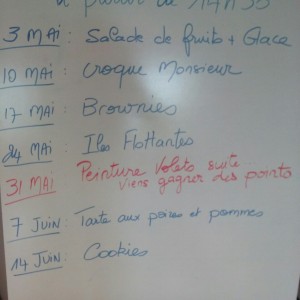 à partir de 14H30
3 MAI : Salade de fruits + Glace
10 MAI : Croque Monsieur
17 MAI : Brownies
24 MAI : Iles Flottantes
31 MAI Peinture Volets suite
viens gagner des points
7 JUIN : Tarte aux poires et pommes
14 JUIN : Cookies